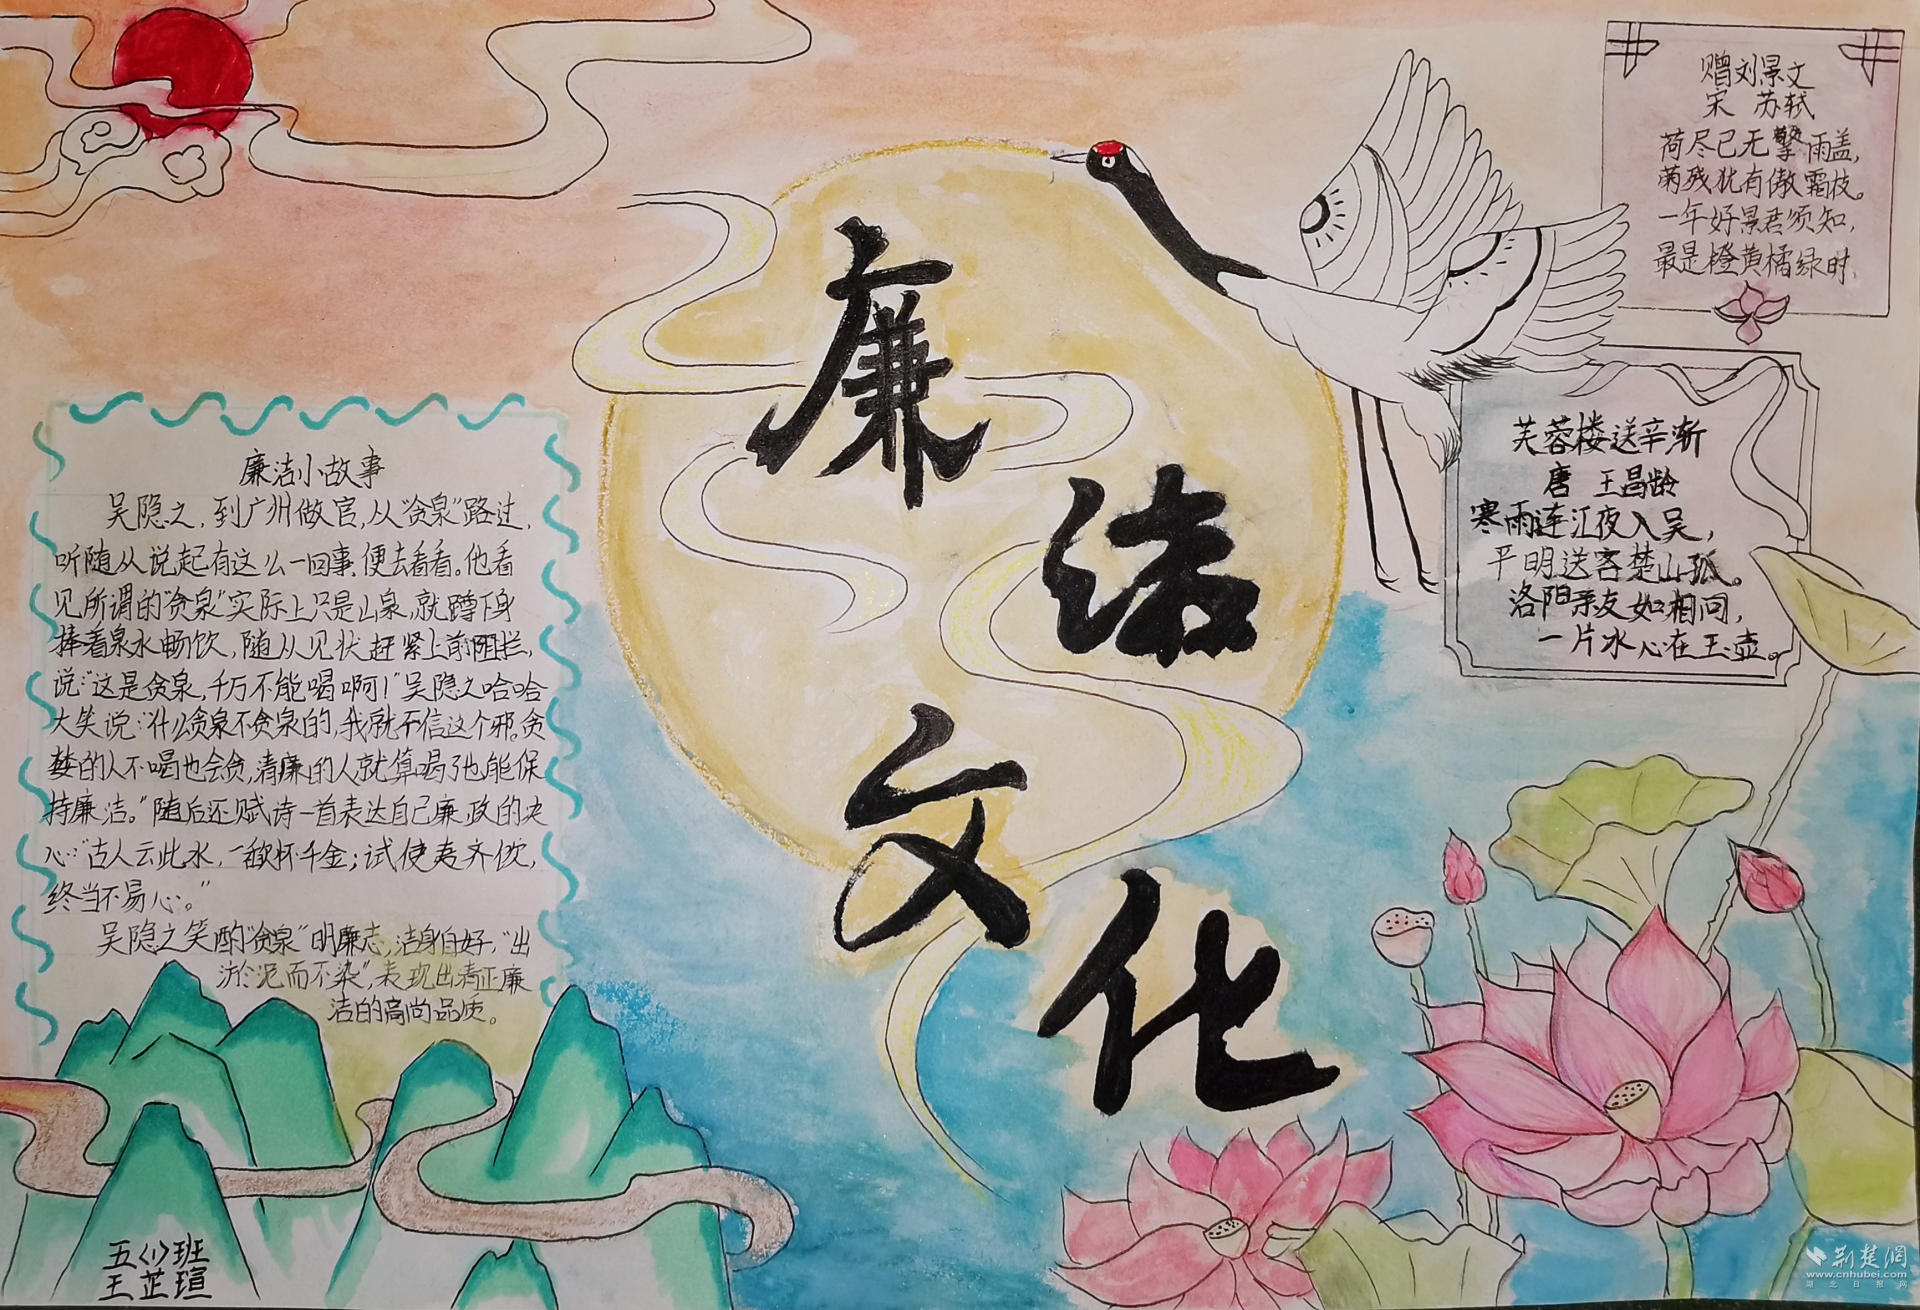 廉洁文化
廉洁小故事
吴隐之，到广州做官，从“贪泉”路过，
听随从说起有这么一回事，便去看看。他看
见所谓的“贪泉”实际上只是山泉，就蹲下身
捧着泉水畅饮，随从见状赶紧上前阻拦，
说：“这是贪泉，千万不能喝啊！”吴隐之哈哈
大笑说：“什么贪泉不贪泉的，我就不信这个邪。贪
婪的人不喝也会贪，清廉的人就算喝了也能保
持廉洁。”随后还赋诗一首表达自己廉政的决
心：“古人云此水，一歃怀千金；试使夷齐饮，
终当不易心。”
吴隐之笑酌“贪泉”明廉志，洁身自好，“出
淤泥而不染”，表现出清正廉
洁的高尚品质。
五〈1〉班
王芷瑄
赠刘景文
宋 苏轼
荷尽已无擎雨盖，
菊残犹有傲霜枝。
一年好景君须知，
最是橙黄橘绿时，
芙蓉楼送辛渐
唐 王昌龄
寒雨连江夜入吴，
平明送客楚山孤。
洛阳亲友如相问，
一片冰心在玉壶。
荆楚网
www.cnhubei.com
湖北日报网